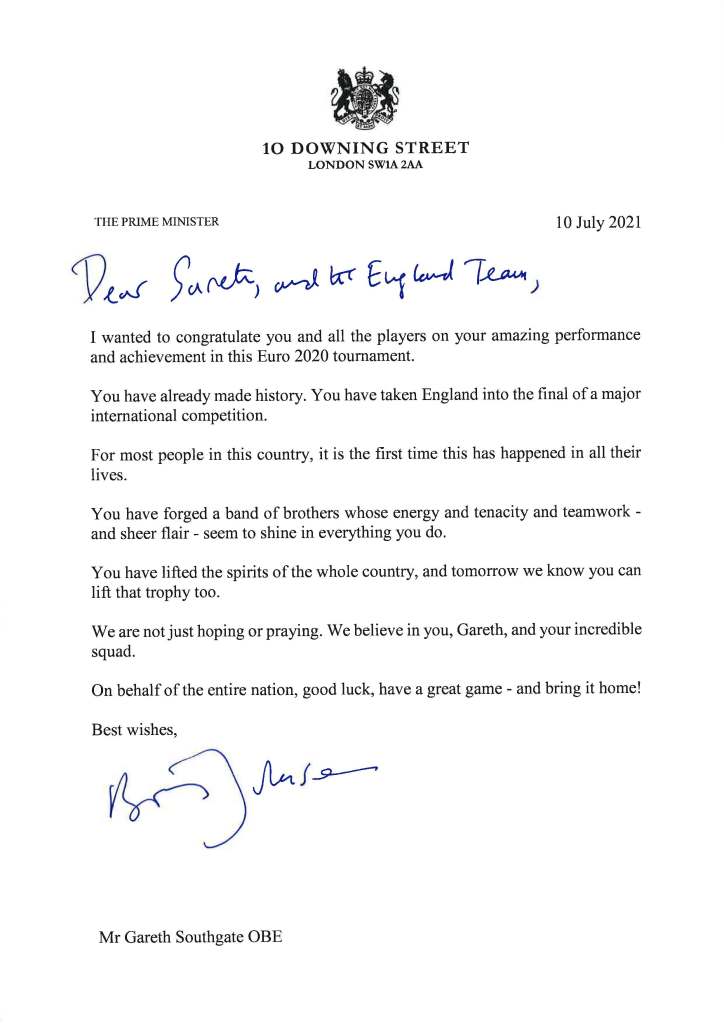 10 DOWNING STREET
LONDON SW1A 2AA
THE PRIME MINISTER
10 July 2021
Dear Gareth, and the England Team,
I wanted to congratulate you and all the players on your amazing performance
and achievement in this Euro 2020 tournament.
You have already made history. You have taken England into the final of a major
international competition.
For most people in this country, it is the first time this has happened in all their
lives.
You have forged a band of brothers whose energy and tenacity and teamwork -
and sheer flair - seem to shine in everything you do.
You have lifted the spirits of the whole country, and tomorrow we know you can
lift that trophy too.
We are not just hoping or praying. We believe in you, Gareth, and your incredible
squad.
On behalf of the entire nation, good luck, have a great game - and bring it home!
Best wishes,
Boris Johnson
Mr Gareth Southgate OBE